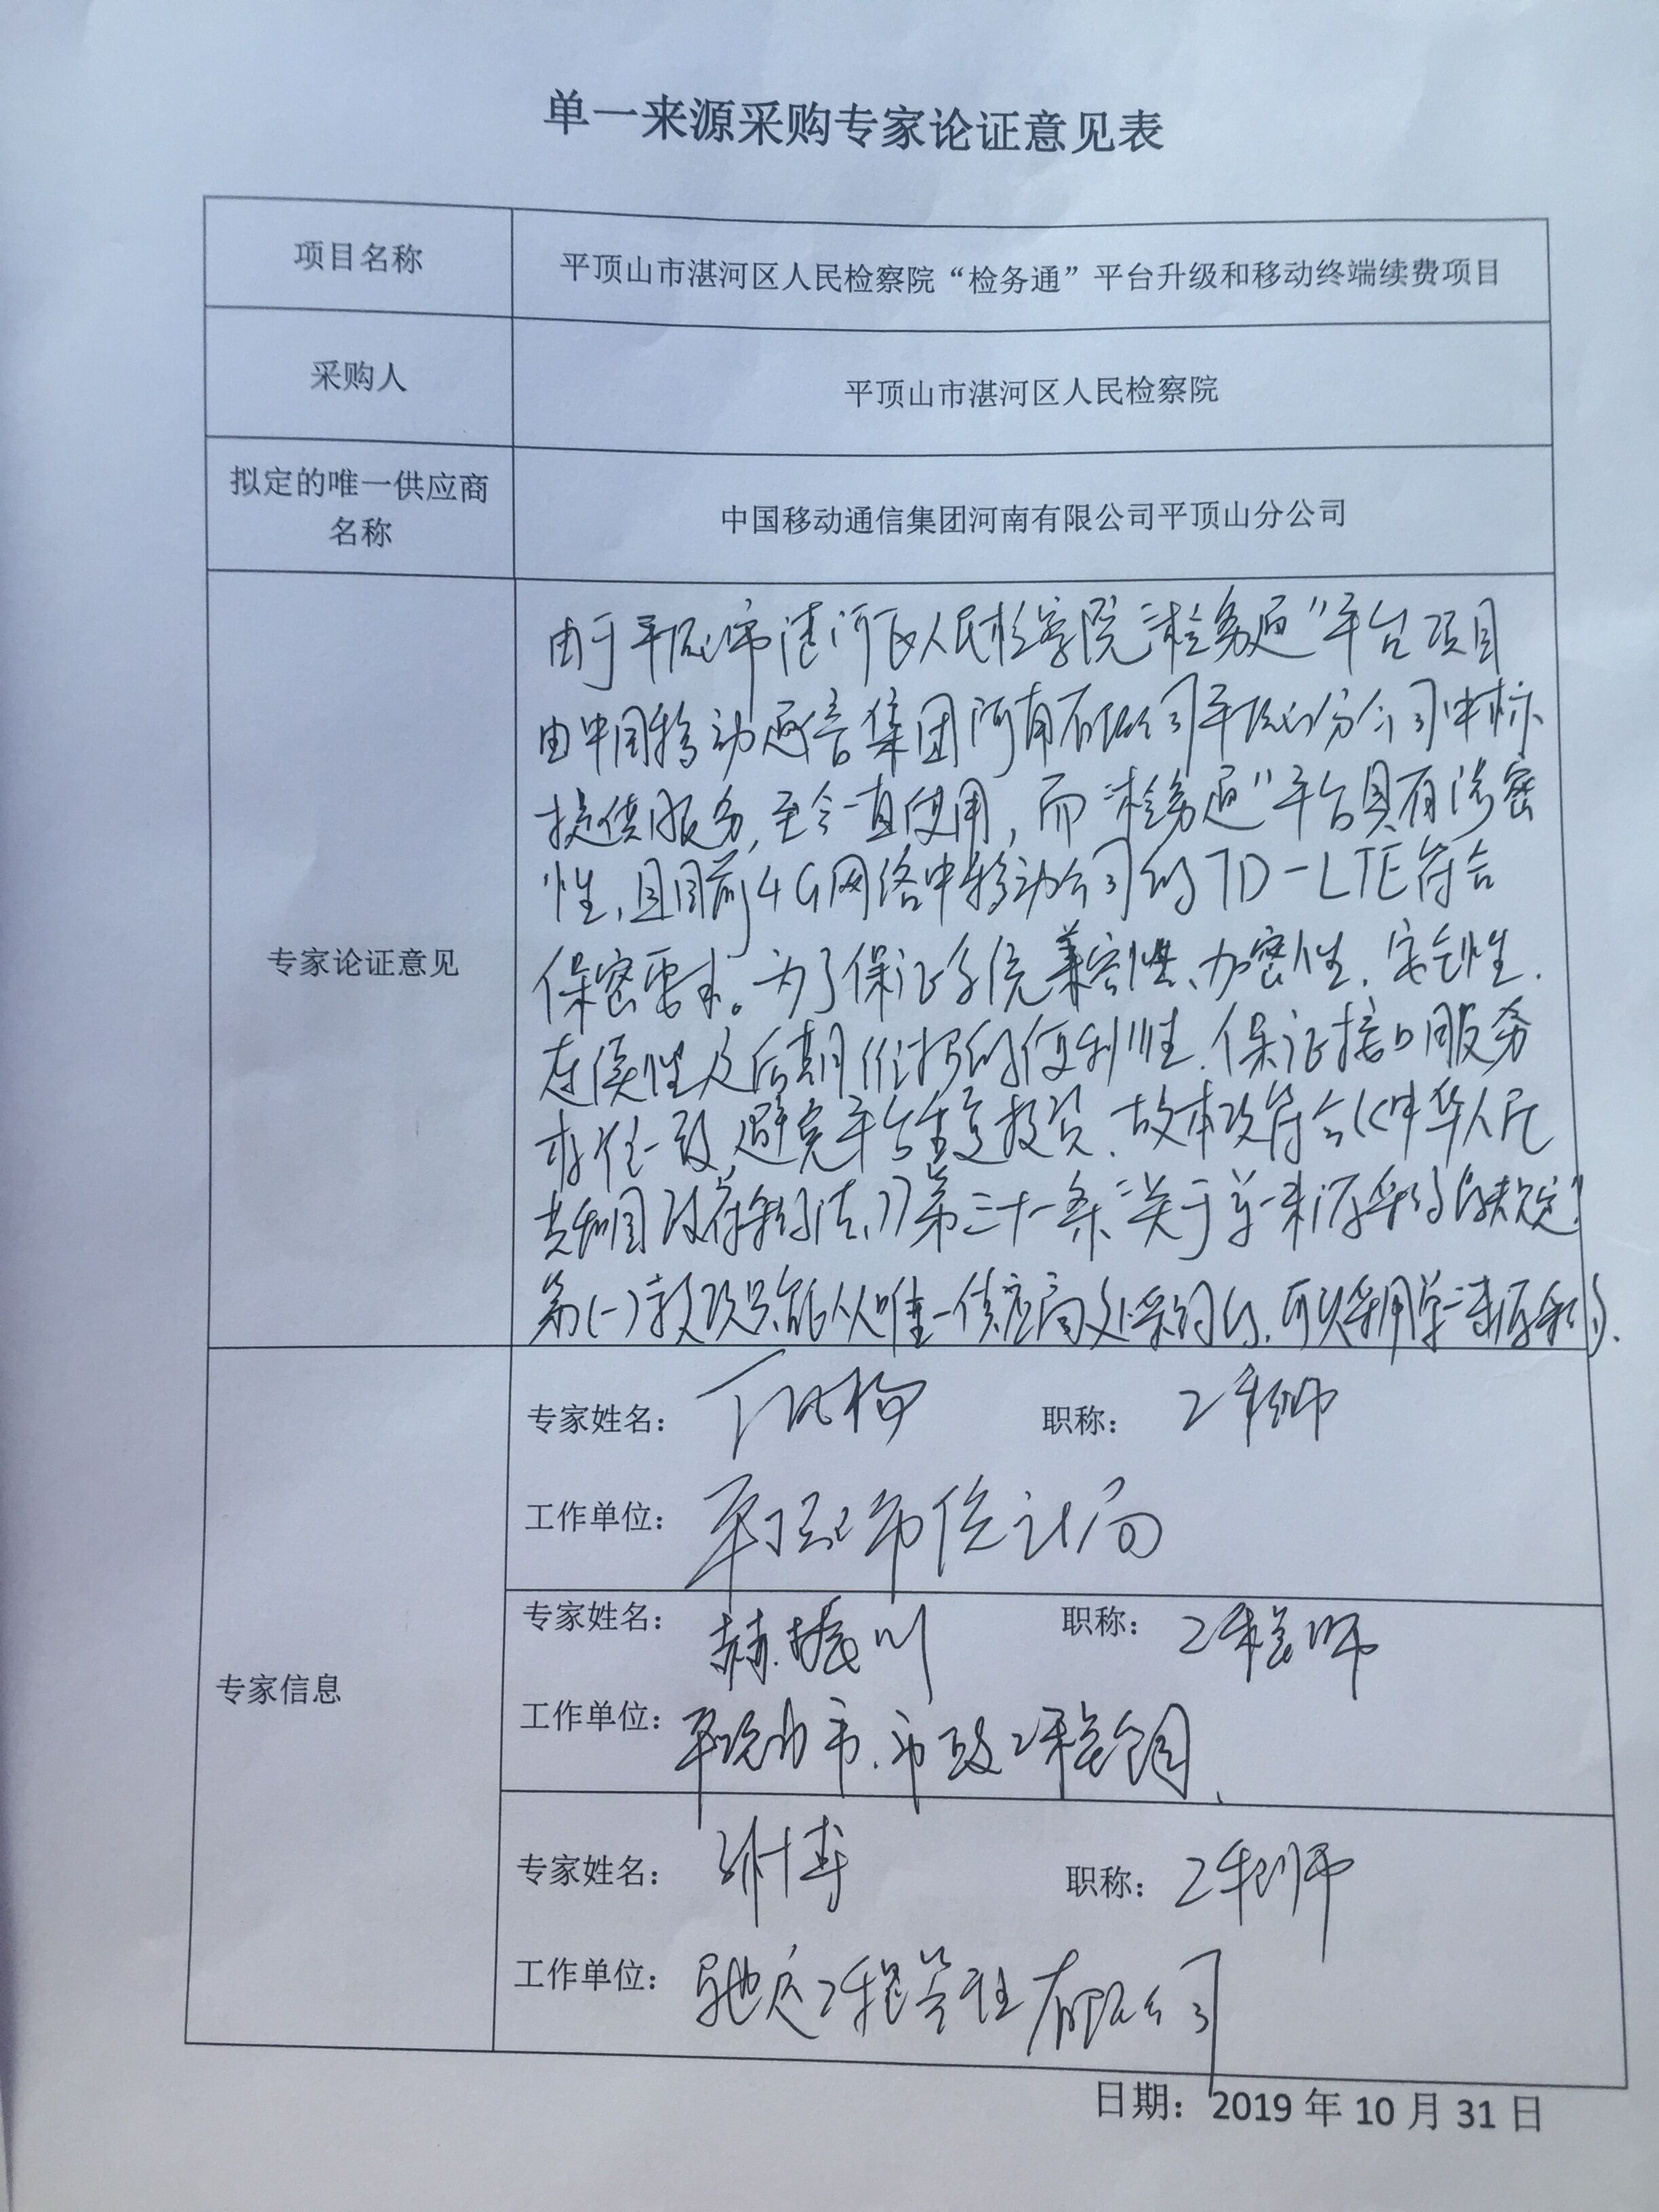 单一来源采购专家论证意见表
项目名称
平顶山市湛河区人民检察院“检务通”平台升级和移动终端续费项目
采购人
平顶山市湛河区人民检察院
拟定的唯一供应商
名称
中国移动通信集团河南有限公司平顶山分公司
专家论证意见
由于平顶山市湛河区人民检察院“检务通”平台项目
由中国移动通信集团河南有限公司平顶山分公司中标
提供服务,至今一直使用,而“检务通”平台具有涉密
性,且目前4G网络中移动公司的TD-LTE符合
保密要求。为了保证系统兼容性、加密性、安全性、
连续性及后期维护的便利性,保证接口服务
一致,避免平台重复投资,故本项符合《中华人民
共和国政府采购法》第三十一条“关于单一来源采购的规定”
第(一)款项只能从唯一供应商处采购的,可以采用单一来源采购。
专家信息
专家姓名: 职称: 工程师
工作单位: 平顶山市统计局
专家姓名: 赫振川 职称: 工程师
工作单位: 平顶山市市政工程公司
专家姓名: 职称: 工程师
工作单位: 驰达工程管理有限公司
日期:2019年10月31日